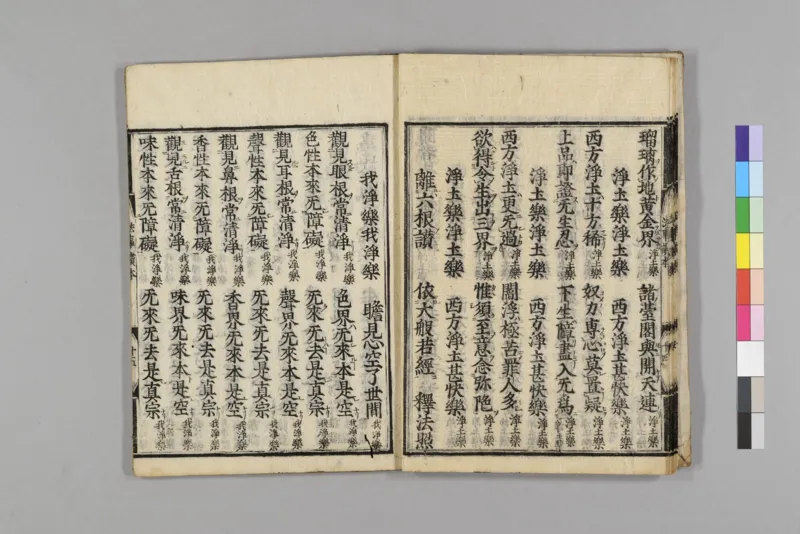 瑠璃作地黄金界 淨土樂 諸臺閣與開天連 淨土樂
淨土樂淨土樂 西方淨土甚快樂
西方淨土十方稀 淨土樂 奴力專心莫置疑 淨土樂
上品即證无生忍 淨土樂 下生猶盡入无為 淨土樂
淨土樂淨土樂 西方淨土甚快樂
西方淨土更无過 淨土樂 閻浮極苦罪人多 淨土樂
欲得今生出三界 淨土樂 惟須至意念弥陁 淨土樂
淨土樂淨土樂 西方淨土甚快樂
離六根讃 依大般若經 釋法照
我淨樂我淨樂 瞻見心空了世間 我淨樂
觀見眼根常清淨 我淨樂 色界无來本是空 我淨樂
色性本來无障礙 我淨樂 无來无去是真宗 我淨樂
觀見耳根常清淨 我淨樂 聲界无來本是空 我淨樂
聲性本來无障礙 我淨樂 无來无去是真宗 我淨樂
觀見鼻根常清淨 我淨樂 香界无來本是空 我淨樂
香性本來无障礙 我淨樂 无來无去是真宗 我淨樂
觀見舌根常清淨 我淨樂 味界无來本是空 我淨樂
味性本來无障礙 我淨樂 无來无去是真宗 我淨樂